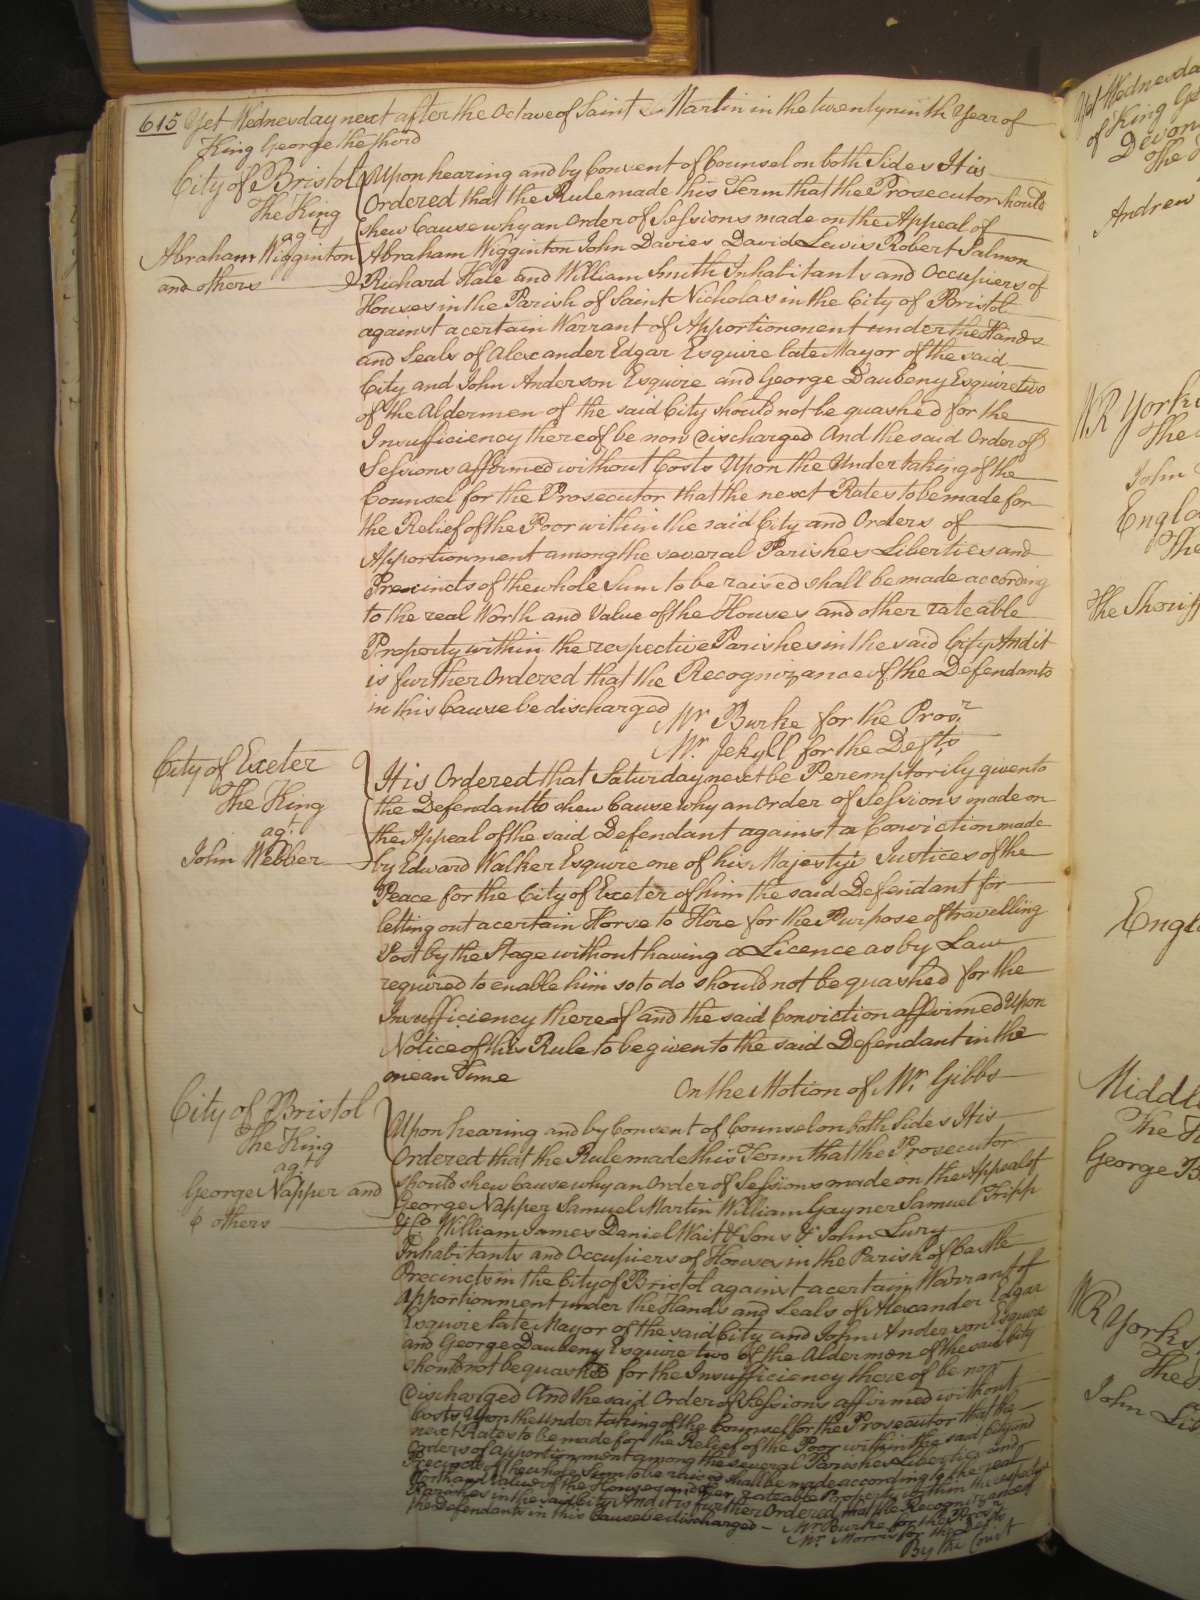 615 Yet Wednesday next after the Octave of Saint Martin in the twenty ninth Year of
King George the third
City of Bristol
The King
agt.
Abraham Wigginton
and others
Upon hearing and by Consent of Counsel on both Sides It is
Ordered that the Rule made this Term that the Prosecutor should
shew Cause why an Order of Sessions made on the Appeal of
Abraham Wigginton John Davies David Lewis Robert Salmon
Richard Hale and William Smith Inhabitants and Occupiers of
Houses in the Parish of Saint Nicholas in the City of Bristol
against a certain Warrant of Apportionment under the Hands
and Seals of Alexander Edgar Esquire late Mayor of the said
City and John Anderson Esquire and George Daubeny Esquire two
of the Aldermen of the said City should not be quashed for the
Insufficiency thereof be now discharged And the said Order of
Sessions affirmed without Costs Upon the Undertaking of the
Counsel for the Prosecutor that the next Rates to be made for
the Relief of the Poor within the said City and Orders of
Apportionment among the several Parishes Liberties and
Precincts of the whole Sum to be raised shall be made according
to the real Worth and Value of the Houses and other rateable
Property within the respective Parishes in the said City And it
is further Ordered that the Recognizance of the Defendants
in this Cause be discharged
Mr. Burke for the Prosr.
Mr. Jekyll for the Defts.
City of Exeter
The King
agt.
John Webber
It is Ordered that Saturday next be Peremptorily given to
the Defendant to shew Cause why an Order of Sessions made on
the Appeal of the said Defendant against a Conviction made
by Edward Walker Esquire one of his Majesty's Justices of the
Peace for the City of Exeter of him the said Defendant for
letting out a certain Horse to Hire for the Purpose of travelling
Post by the Stage without having a Licence as by Law
required to enable him so to do should not be quashed for the
Insufficiency thereof and the said Conviction affirmed Upon
Notice of this Rule to be given to the said Defendant in the
mean Time
On the Motion of Mr. Gibbs
City of Bristol
The King
agt.
George Napper and
others
Upon hearing and by Consent of Counsel on both Sides It is
Ordered that the Rule made this Term that the Prosecutor
should shew Cause why an Order of Sessions made on the Appeal of
George Napper Samuel Martin William Gayner Samuel Tripp
& Co. William James Daniel Wait & Sons & John Lury
Inhabitants and Occupiers of Houses in the Parish of Castle
Precincts in the City of Bristol against a certain Warrant of
Apportionment under the Hands and Seals of Alexander Edgar
Esquire late Mayor of the said City and John Anderson Esquire
and George Daubeny Esquire two of the Aldermen of the said City
should not be quashed for the Insufficiency thereof be now
discharged And the said Order of Sessions affirmed without
Costs Upon the undertaking of the Counsel for the Prosecutor that the
next Rates to be made for the Relief of the Poor within the said City and
Orders of apportionment among the several Parishes Liberties and
Precincts of the whole Sum to be raised shall be made according to the real
Worth and Value of the Houses and other rateable Property within the respective
Parishes in the said City And it is further Ordered that the Recognizance of
the Defendants in this Cause be discharged - Mr Burke for the Prosr.
Mr. Morris for the Defts
By the Court
Yet Wednesda
of King Ge
Devon
The
Andrew
WR Yorks
The
John
Engla
The
The Sheriff
Engla
Middl
The K
George B
WR Yorks
The
John Lis